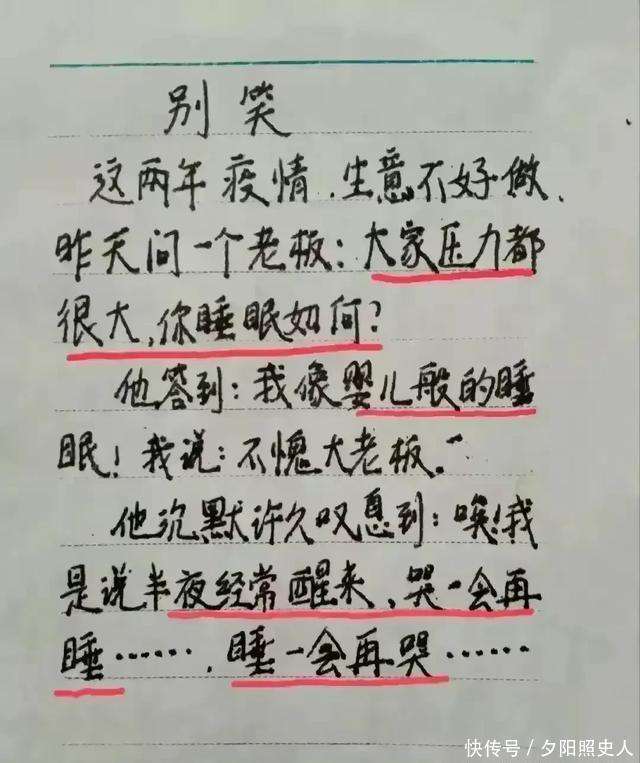 别笑
这两年疫情.生意不好做.
昨天问一个老板:大家压力都
很大,你睡眠如何?
他答到:我像婴儿般的睡
眠!我说:不愧大老板.
他沉默许久叹息到:唉!我
是说半夜经常醒来,哭一会再
睡……,睡一会再哭……
快传号/夕阳照史人